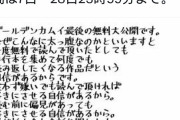 間は7日〜28日23時59分まで。
ールデンカムイ最後の無料大公開です。
ぜこんなに太っ腹なのかといいますと
度無料で読んで頂いたとしても
行本を集めて何度でも
み返したくなる作品だという
信があるからです。
わず嫌いでも読んで頂ければ
きにさせる自信があるから。
む前に偏見があっても
きにさせる自信があるから